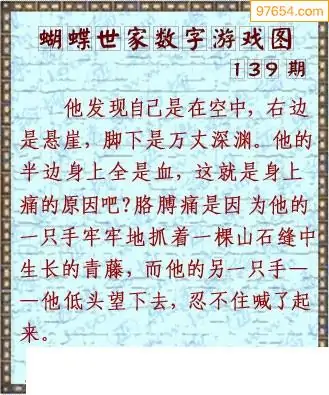 97654.com
蝴蝶世家数字游戏图
139期
他发现自己是在空中，右边
是悬崖，脚下是万丈深渊。他的
半边身上全是血，这就是身上
痛的原因吧?胳膊痛是因为他的
一只手牢牢地抓着一棵山石缝中
生长的青藤，而他的另一只手—
—他低头望下去，忍不住喊了起
来。